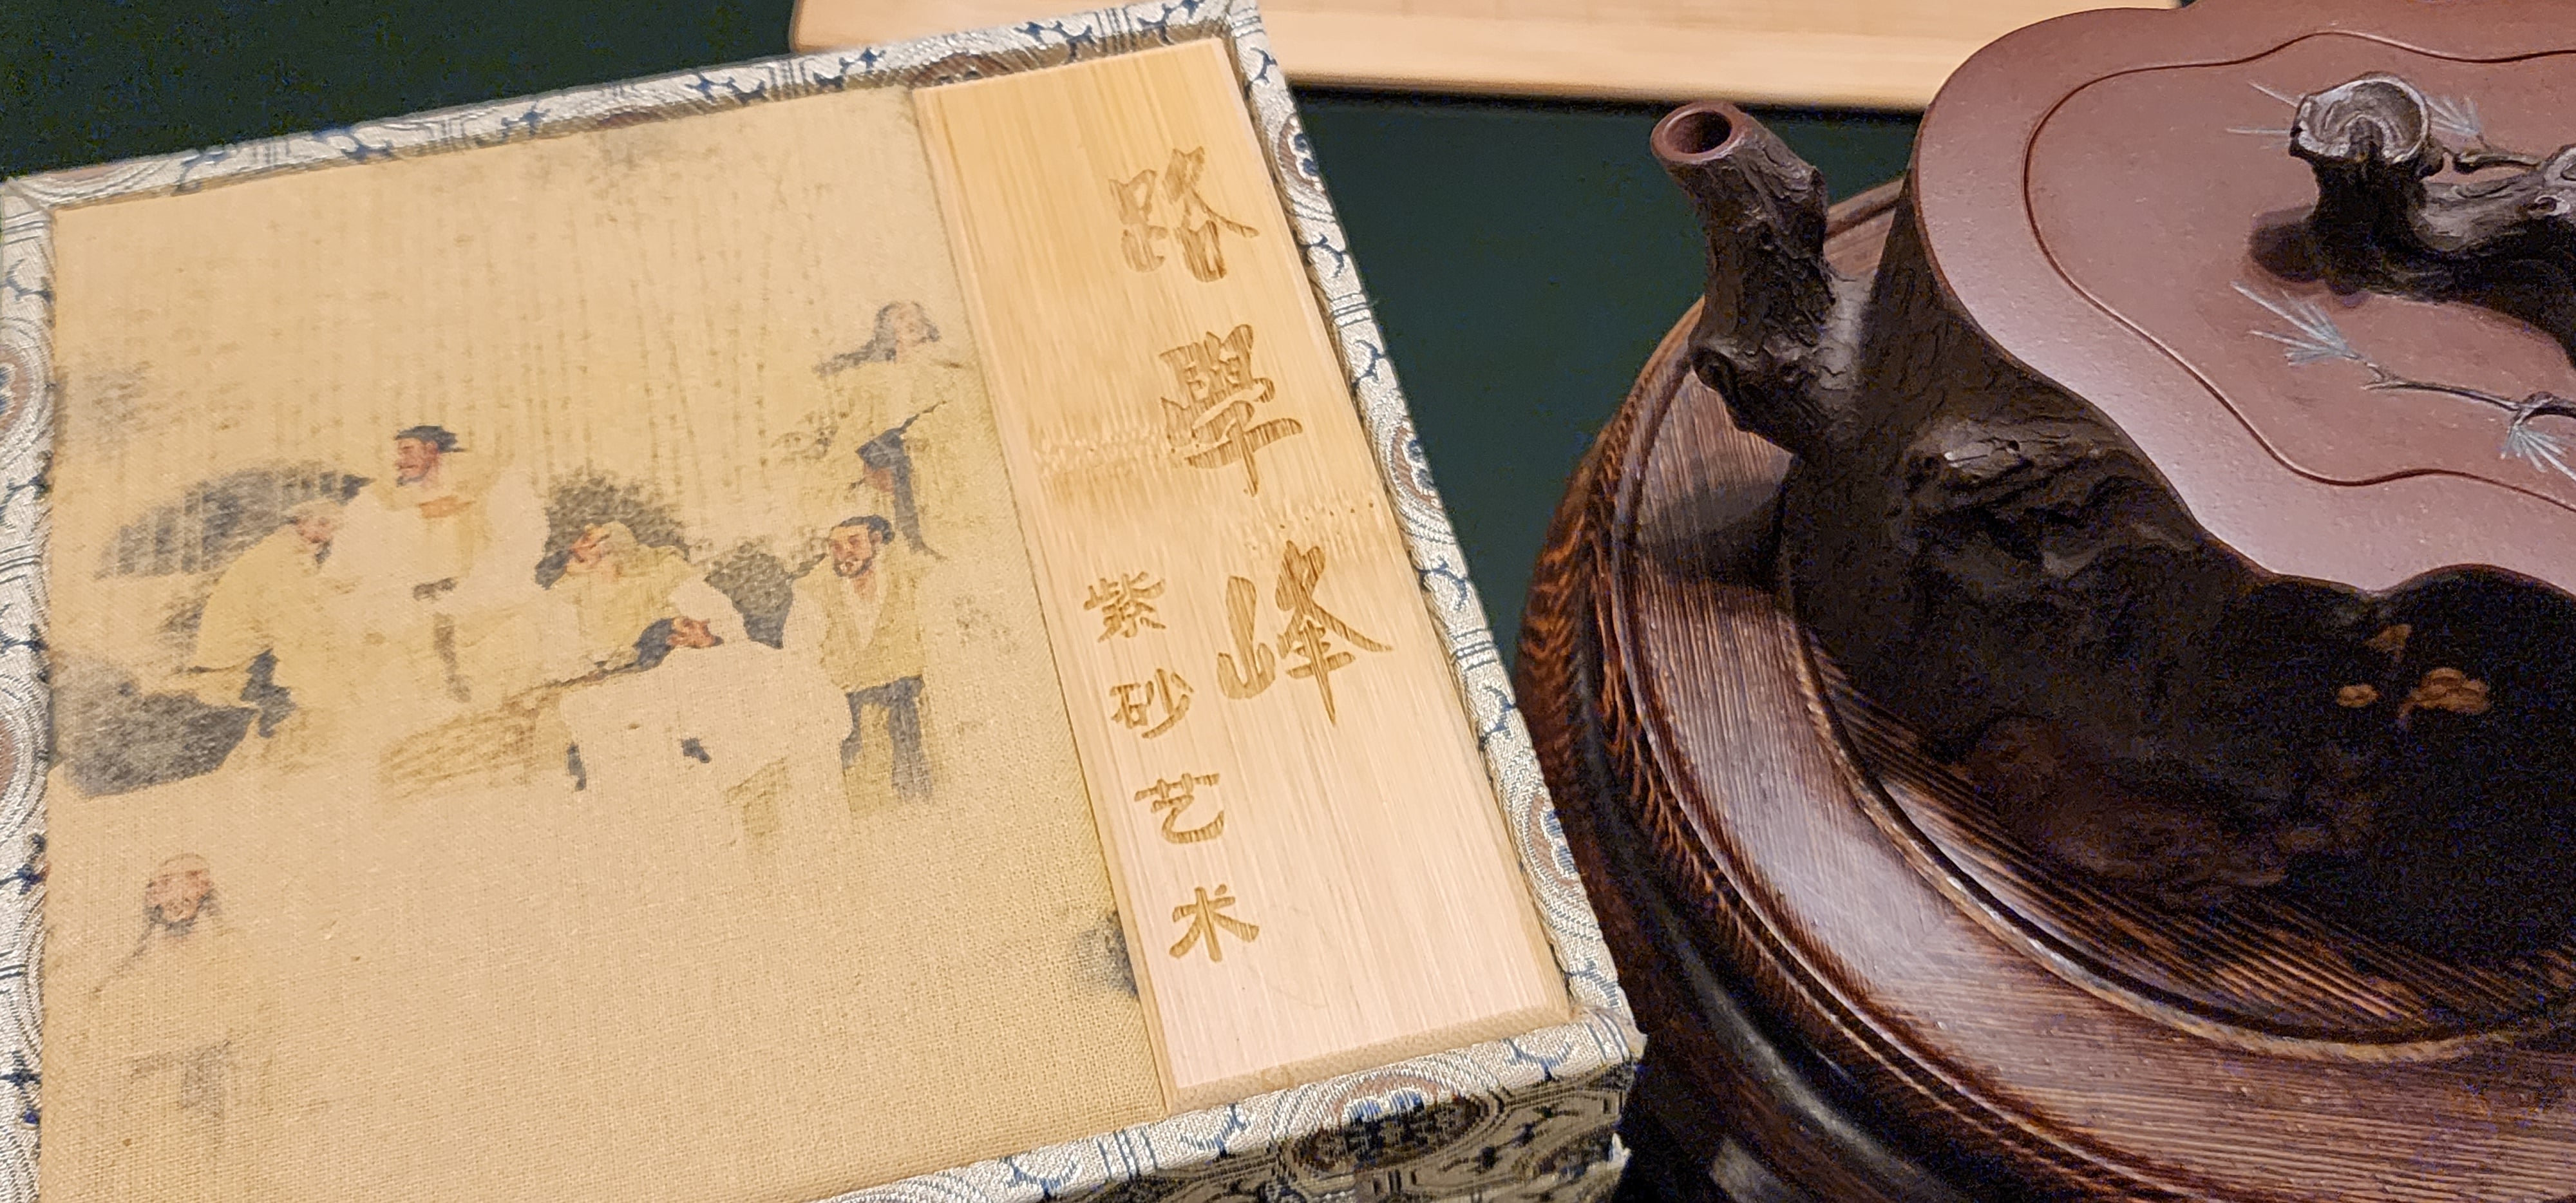 路學峰
紫砂艺术